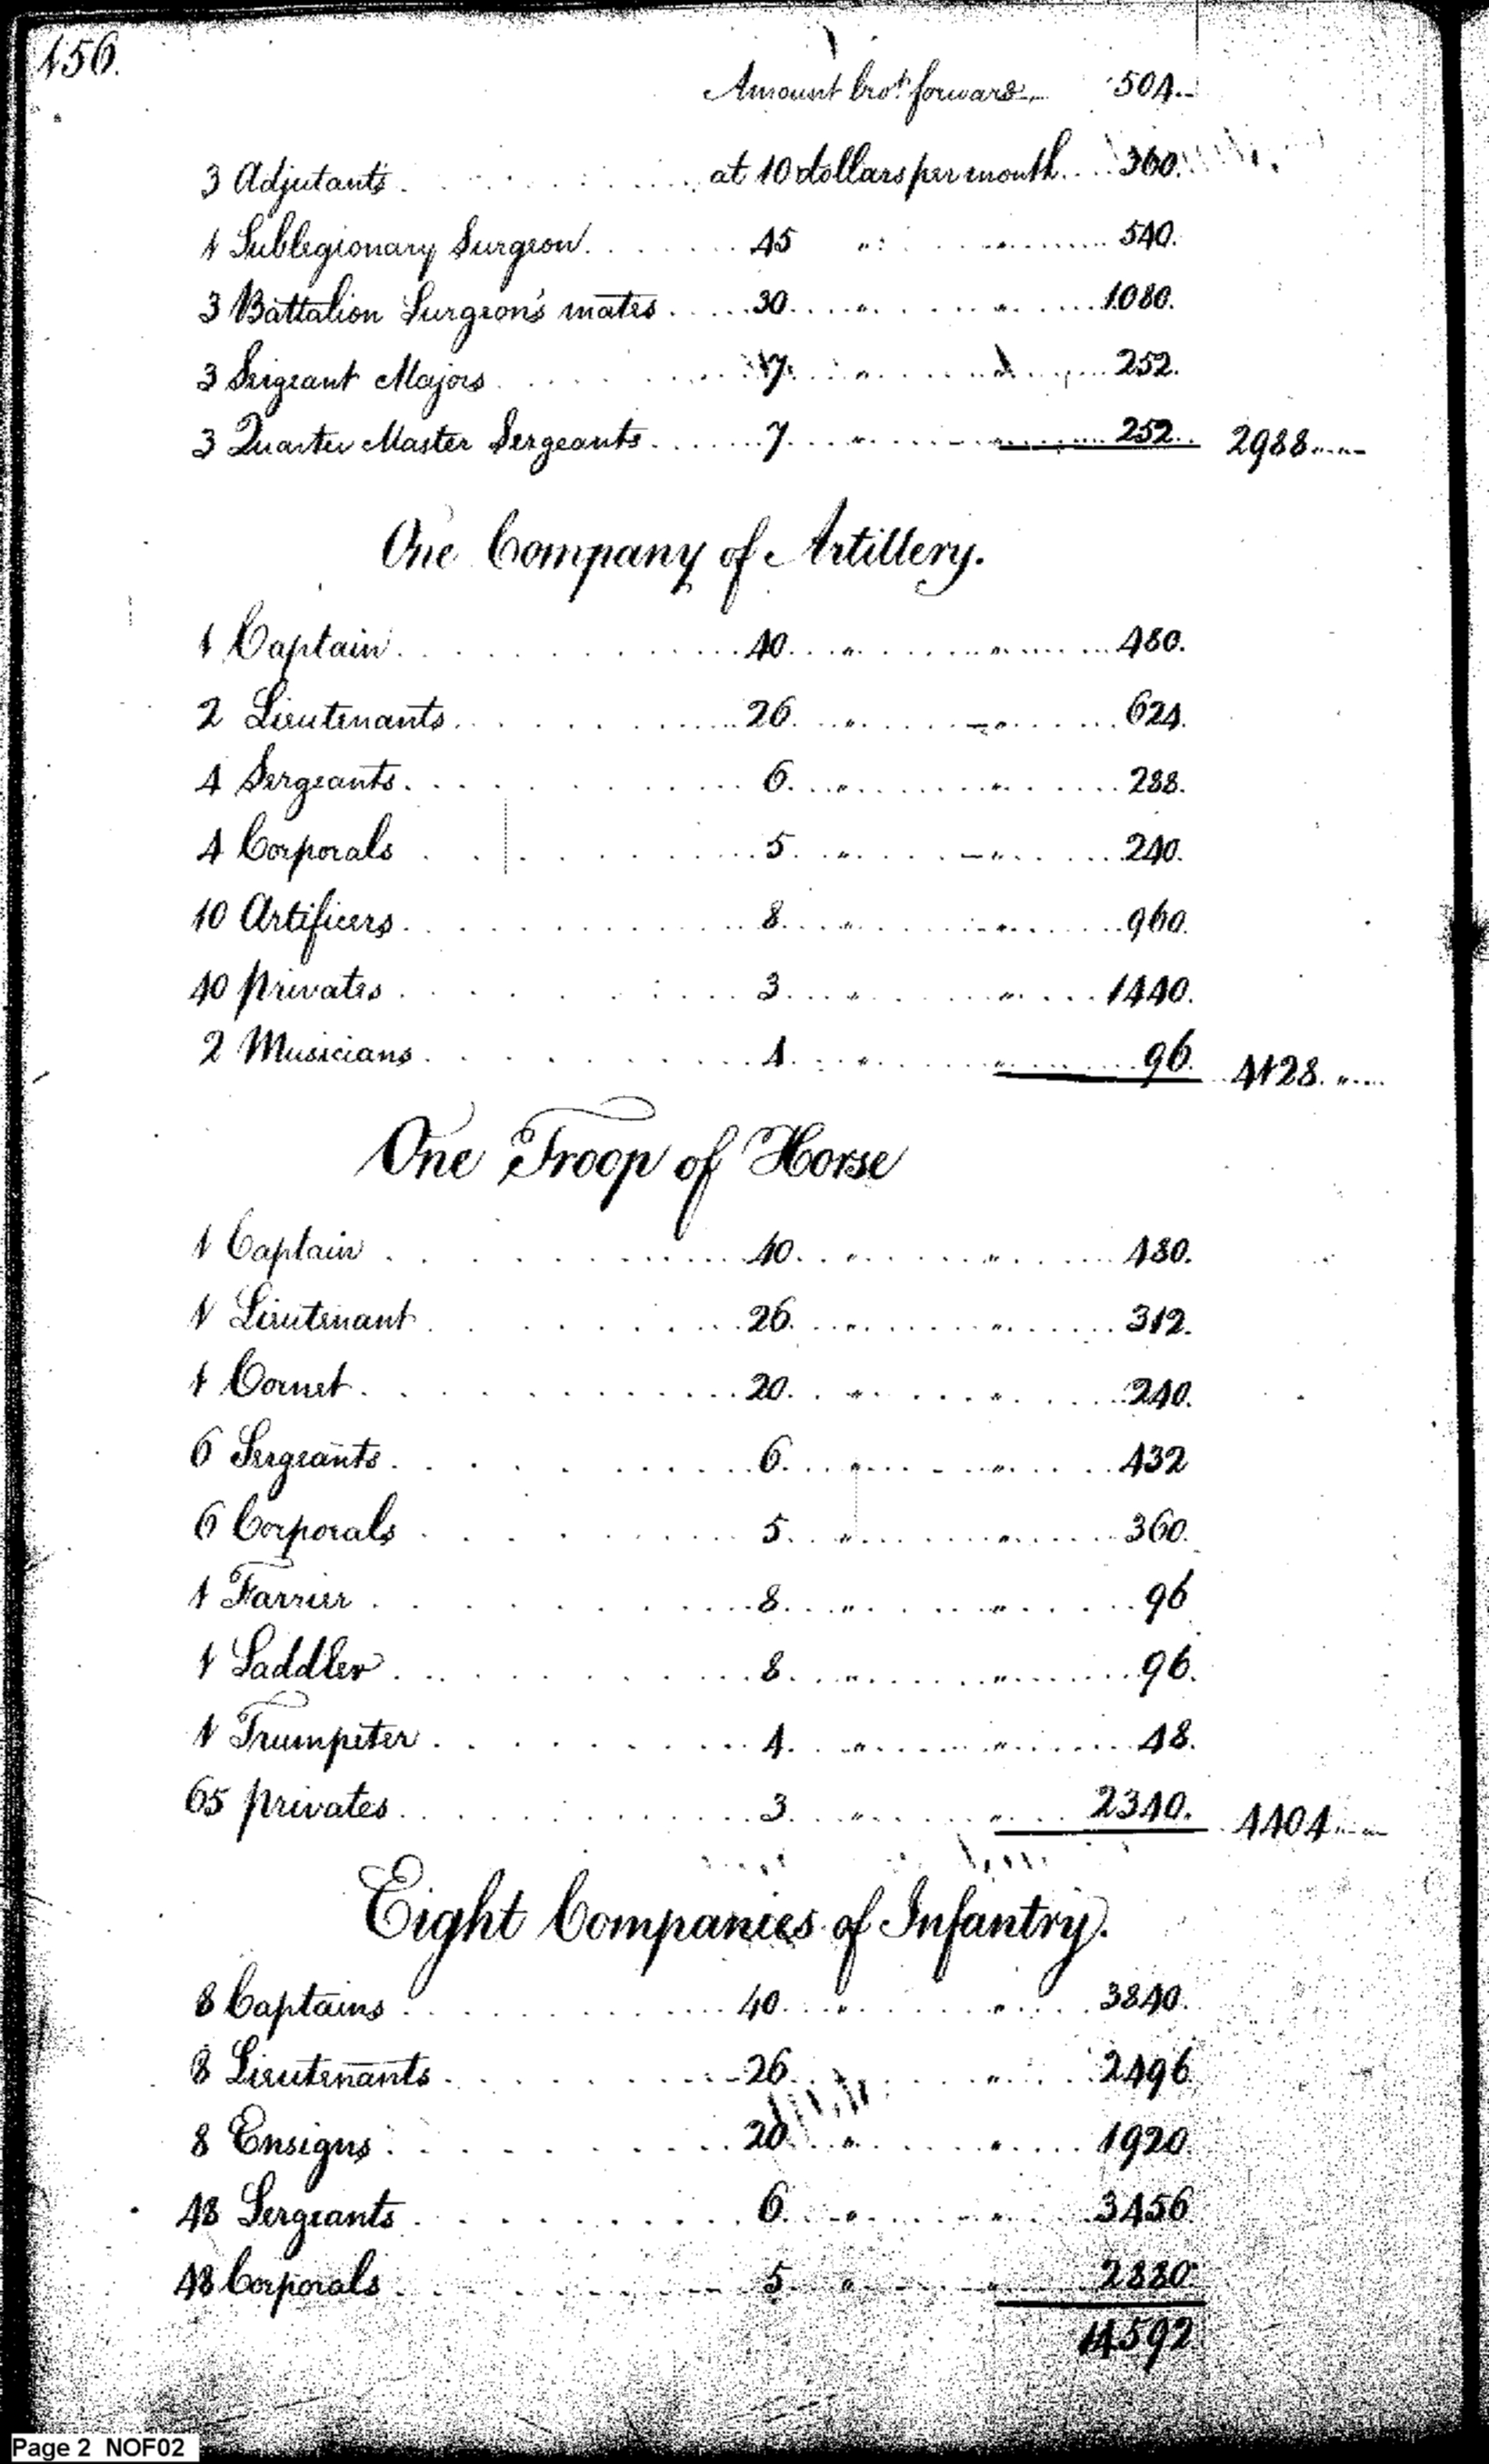 156.
Amount brot. forward, 504..
3 Adjutants. at 10 dollars per month. 360.
1 Sublegionary Surgeon. 45 " " 540.
3 Battalion Surgeon's mates 30 " " 1080.
3 Sergeant Majors 7 " " 252.
3 Quarter Master Sergeants 7 " " 252. 2988 " "
One Company of Artillery.
1 Captain 40 " " 480.
2 Lieutenants 26 " " 624.
4 Sergeants 6 " " 288.
4 Corporals 5 " " 240.
10 Artificers 8 " " 960.
40 privates 3 " " 1440.
2 Musicians 4 " " 96. 4128. "
One Troop of Horse
1 Captain 40 " " 480.
1 Lieutenant 26 " " 312.
1 Cornet 20 " " 240.
6 Sergeants 6 " " 432
6 Corporals 5 " " 360.
1 Farrier 8 " " 96
1 Saddler 8 " " 96.
1 Trumpeter 4 " " 48.
65 privates 3 " " 2340. 4404
Eight Companies of Infantry.
8 Captains 40 " " 3840.
8 Lieutenants 26 " 2496
8 Ensigns 20 " " 1920.
48 Sergeants 6 " " 3456
48 Corporals 5 " " 2880
14592
Page 2 NOF02